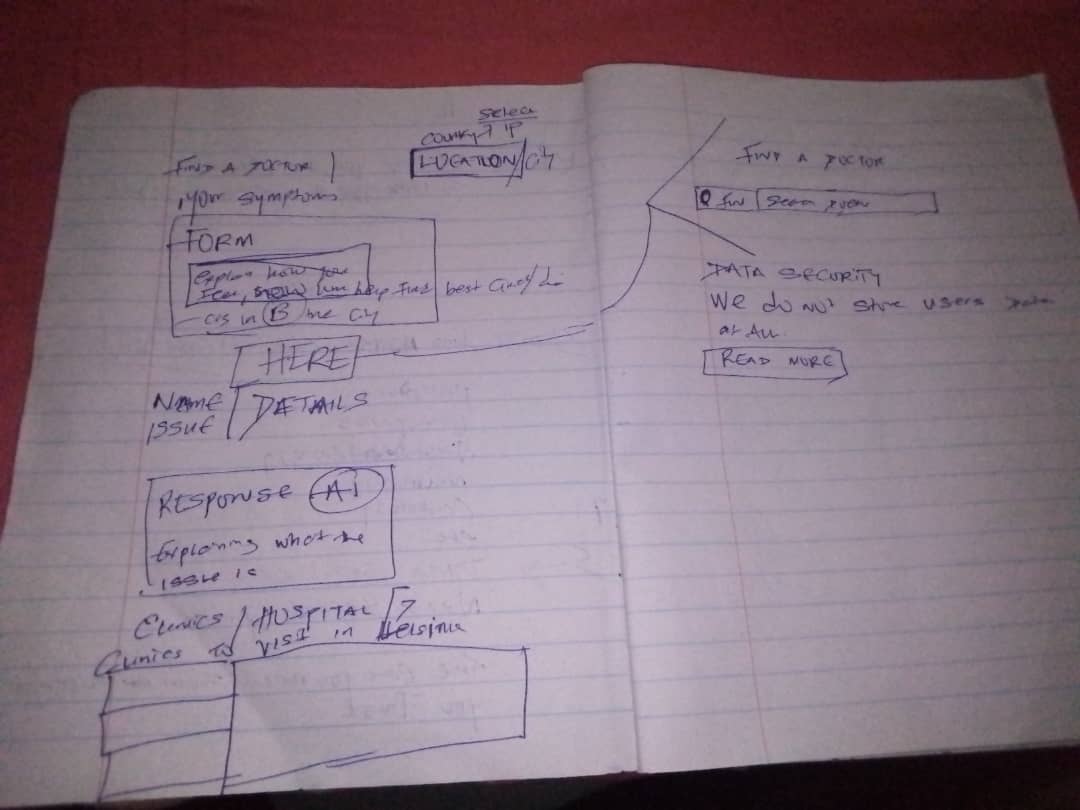 Select
Country IP
LOCATION / City
FIND A DOCTOR
your symptoms
FORM
Explain how you
feel, help Find best
in the City
HERE
NAME
ISSUE
DETAILS
RESPONSE AI
Explaining what the
issue is
Clinics / HOSPITAL
Clinics to VISIT in Helsinki
FIND A DOCTOR
DATA SECURITY
We do not store users Data
at ALL.
READ MORE